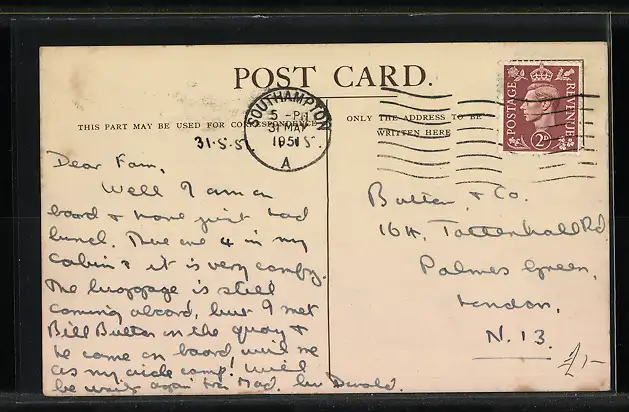 POST CARD.
SOUTHAMPTON
5 - PM
31 MAY
1951
A
POSTAGE
REVENUE
2D
THIS PART MAY BE USED FOR CORRESPONDENCE
ONLY THE ADDRESS TO BE
WRITTEN HERE
31.5.5
Dear Fam,
Well I am on
board & have just had
lunch. There are 4 in my
cabin & it is very comfy.
The luggage is still
coming aboard, but I met
Bill Butten on the quay &
he came on board with me
as my aide camp! Will
be writing again from Mad. luv
Butten & Co.
164, Tottenhall Rd
Palmers Green,
London,
N. 13.
£1/-